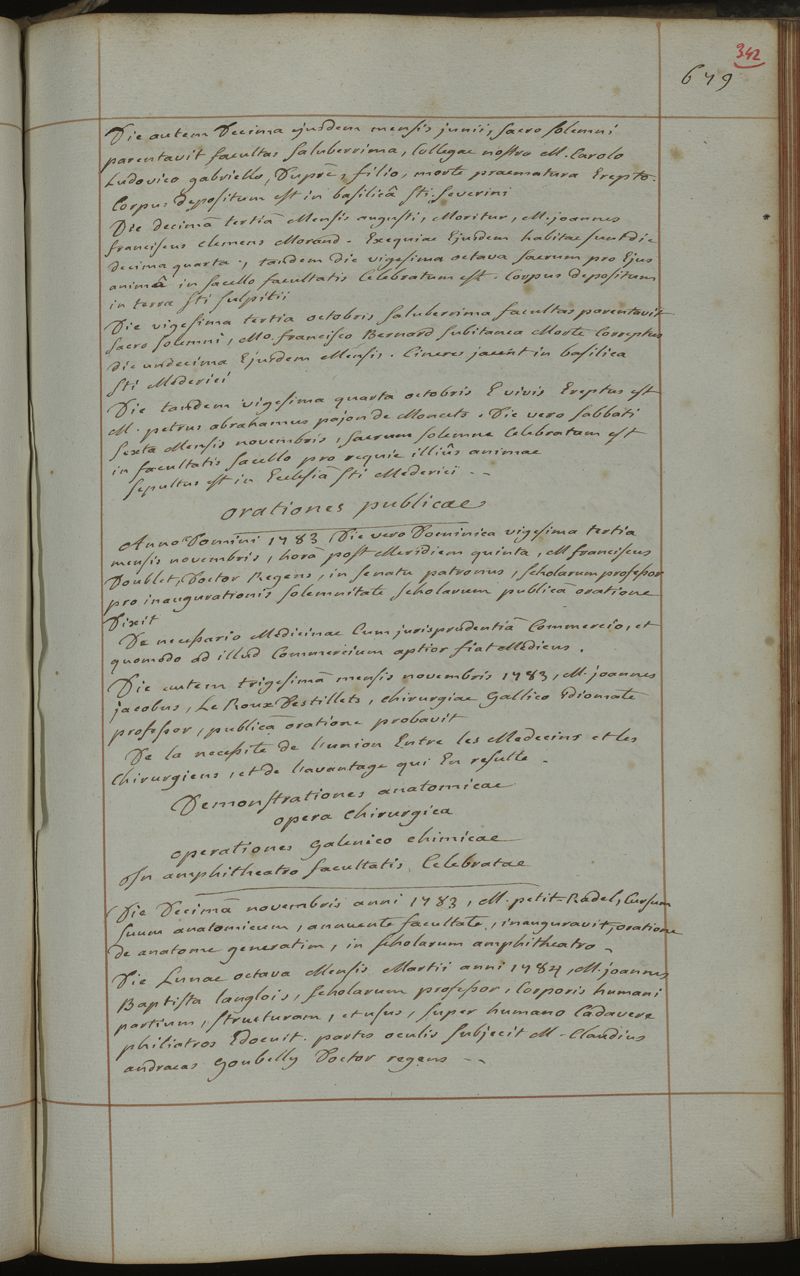 342
679
Die autem Decima ejusdem mensis junii, sacro solemni
parentavit facultas saluberrima, Collegae nostro M. Carolo
Ludovico gabrielle, Dupré, filio, morte praematura Erepto.
Corpus depositum est in basilicâ Sti. Severini
Die decimâ tertiâ Mensis augusti, Moritur, M. joannes
franciscus clemens Morand. Exequiae Ejusdem habitae sunt die
decima quarta, tandem die vigesima octava sacrum pro Ejus
animâ in sacello facultatis Celebratum est. Corpus depositum
in terra Sti Sulpitii
Die vigesima tertia octobris saluberrima facultas parentavit
sacro solemni, Mo. francisco Bernard subitanea Morte Correptus
die undecima Ejusdem Mensis. Cineres jacent in basilica
Sti Mederici
Die tandem vigesima quarta octobris E vivis Ereptus est
M. petrus abrahamus pajon de Moncets. Die vero sabbati
sexta Mensis novembris, sacrum solemne Celebratum est
in facultatis sacello pro requie illiûs animae
sepultus est in Ecclesiâ Sti Mederici - -
orationes publicae
Anno Domini 1783 Die vero Dominica vigesima tertia
mensis novembris, horâ post Meridiem quinta, M franciscus
Doublet, Doctor Regens, in senatu patronus, scholarum professor
pro inaugurationis solemnitate scholarum publicâ oratione
Dixit
De necessario Medicinae Cum jurisprudentiâ Commercio, et
quomodo ad illud Commercium aptior fiat Medicus.
Die autem trigesimâ mensis novembris 1783, M. joannes
jacobus, Le Roux Destillets, chirurgiae Gallico Idiomate
professor, publicâ oratione probavit
De la necessité de l'union Entre les Medecins et les
Chirurgiens, et de l'avantage qui En resulte -
Demonstrationes anatomicae
opera Chirurgica
operationes galenico chimicae
In amphitheatro facultatis Celebratae
Die Decimâ novembris anni 1783, M. petit-Radel, Cursum
suum anatomicum, annuente facultate, inauguravit, oratione
de anatome generatim, in scholarum amphitheatro -
Die Lunae octava Mensis Martii anni 1784, M. joannes
Baptista langlois, scholarum professor, Corporis humani
partium, structuram, et usus, super humano Cadavere
philiatros Edocuit. partes oculis subjecit M. Claudius
andraeas Goubelly Doctor regens - -